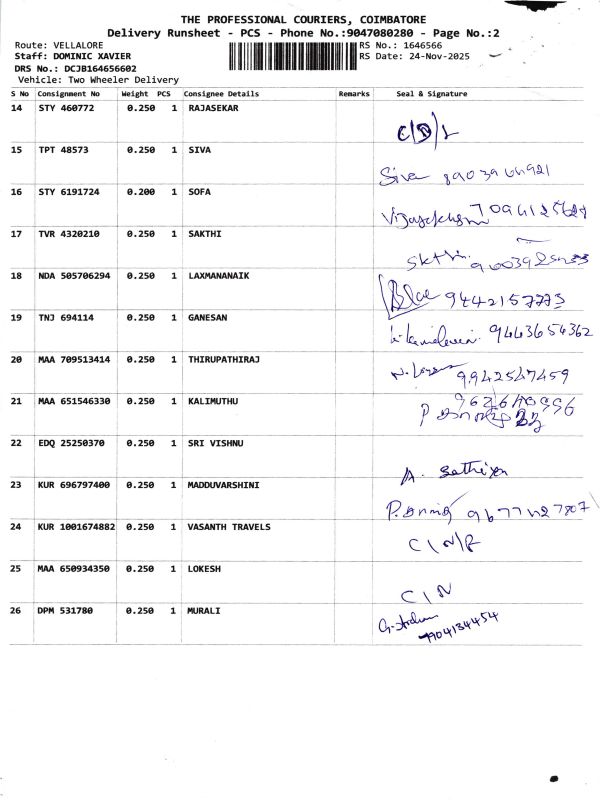 THE PROFESSIONAL COURIERS, COIMBATORE
Delivery Runsheet - PCS - Phone No.:9047080280 - Page No.:2
Route: VELLALORE
Staff: DOMINIC XAVIER
DRS No.: DCJB164656602
Vehicle: Two Wheeler Delivery
RS No.: 1646566
RS Date: 24-Nov-2025
S No Consignment No Weight PCS Consignee Details Remarks Seal & Signature
14 STY 460772 0.250 1 RAJASEKAR
15 TPT 48573 0.250 1 SIVA
Siva
16 STY 6191724 0.200 1 SOFA
17 TVR 4320210 0.250 1 SAKTHI
18 NDA 505706294 0.250 1 LAXMANANAIK
9442157773
19 TNJ 694114 0.250 1 GANESAN
9443654362
20 MAA 709513414 0.250 1 THIRUPATHIRAJ
9942547459
21 MAA 651546330 0.250 1 KALIMUTHU
22 EDQ 25250370 0.250 1 SRI VISHNU
A. Sathiya
23 KUR 696797400 0.250 1 MADDUVARSHINI
24 KUR 1001674882 0.250 1 VASANTH TRAVELS
25 MAA 650934350 0.250 1 LOKESH
C I N
26 DPM 531780 0.250 1 MURALI